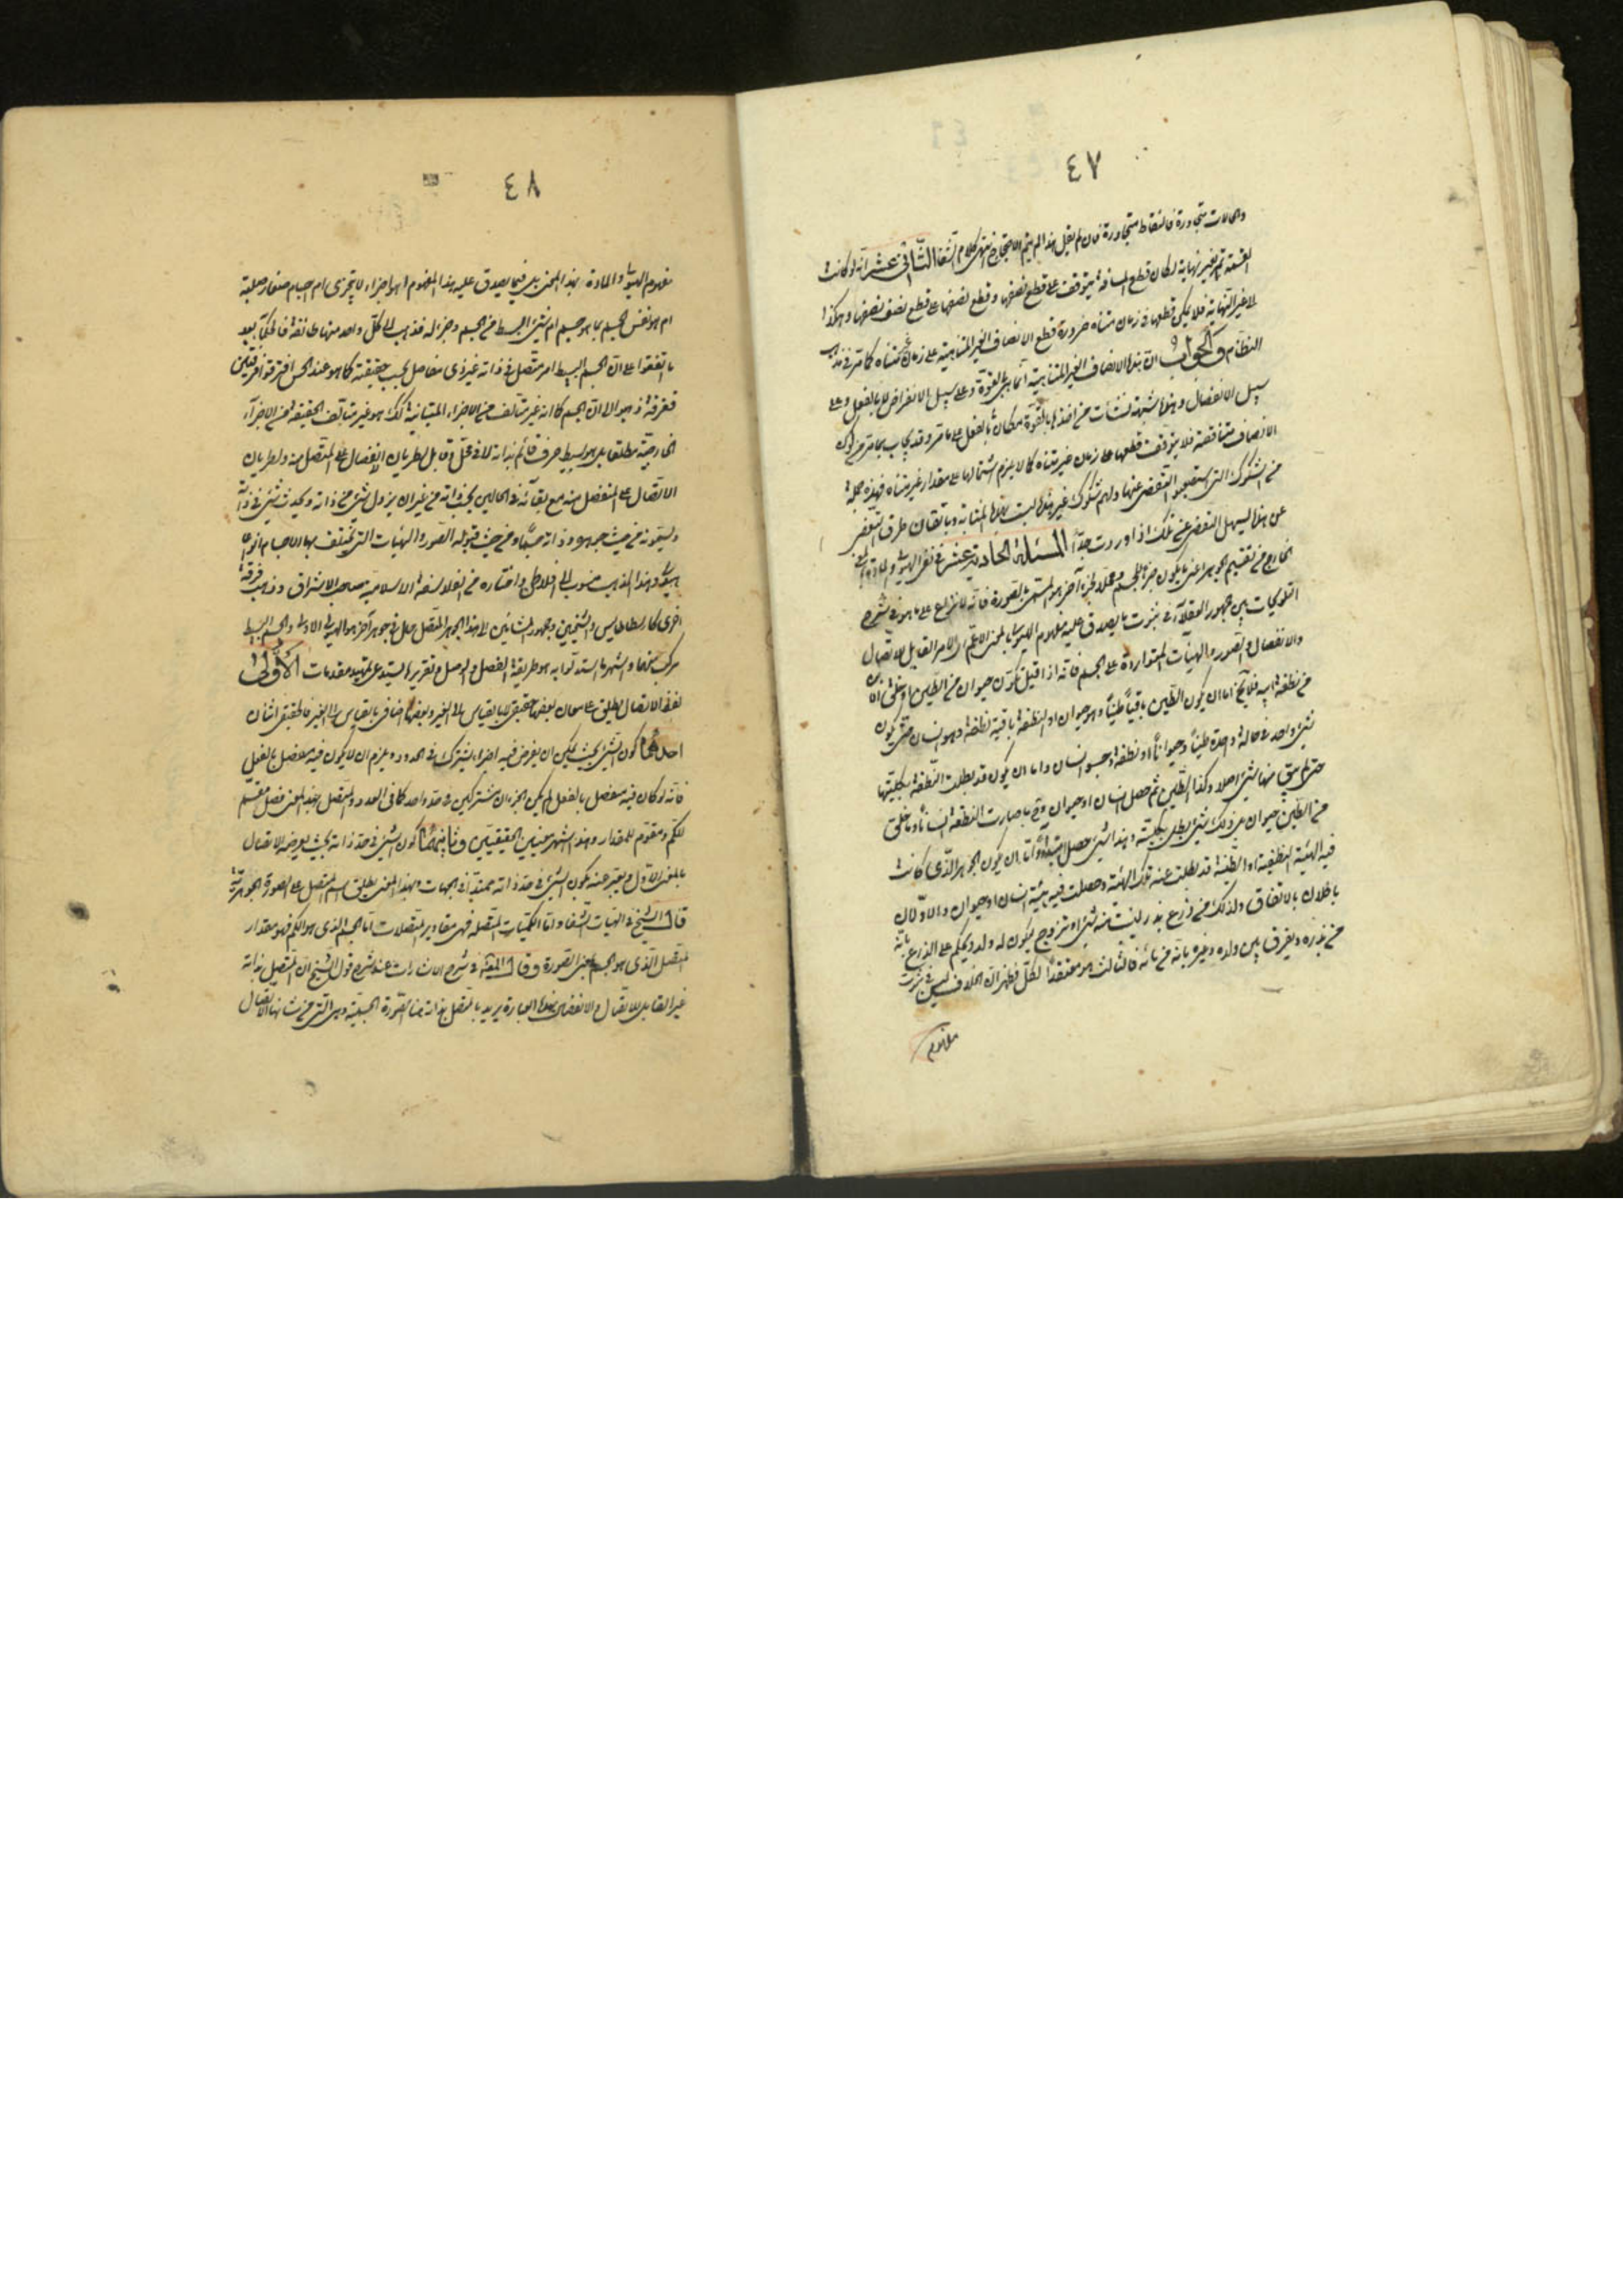 ٤٧
والحالات متجاورة فالنقاط متجاورة فان لم يقل هذا لم يتم الاحتجاج انتهى كلام الشفا الثانى عشر انه لو كانت
القسمة تمر بغير نهاية لكان قطع المسافة يتوقف على قطع نصفها وقطع نصفها على قطع نصف نصفها وهكذا
الى غير النهاية فلا يمكن قطعها فى زمان متناه ضرورة قطع الانصاف الغير المتناهية على زمان غير متناه كما مر فى مذهب
النظام والجواب ان هذه الانصاف الغير المتناهية انما هى بالقوة وعلى سبيل الانفراض لا بالفعل وعلى
سبيل الانفصال وهذه شبهة نشأت من اخذ ما بالقوة مكان ما بالفعل على ما مر وقد يجاب بما مر من كون
الانصاف متناقصة فلا يتوقف قطعها على زمان غير متناه كما لا يلزم اشتمالها على مقدار غير متناه فهذه جملة
من الشكوك التى استصعبوا التفصى عنها ولهم شكوك غير هذه ليست بهذه المثابة وباتقان طرق التفصى
عن هذه ليسهل التفصى عن تلك اذا اوردت جدا المسئلة الحادية عشر فى نفى الهيولى والمادة
الخارج من تقسيم الجوهر اعنى ما يكون جزءا للجسم ومحلا لجزء آخر هو المسمى بالصورة فانه لا نزاع على ما هو فى شرح
التلويحات بين جمهور العقلاء فى ثبوت ما يصدق عليه مفهوم الهيولى بالمعنى الاعم اى الامر القابل للاتصال
والانفصال والصور والهيئات المتواردة على الجسم فانه اذا قيل تكون حيوان من الطين او خلق ابن
من نطفة ابيه فلا يخ اما ان يكون الطين باقيا طينا وهو حيوان او النطفة باقية نطفة وهو انسان حتى يكون
شئ واحد فى حالة واحدة طينا وحيوانا او نطفة وجسد انسان واما ان يكون قد بطلت النطفة بكليتها
حتى لم يبق منها شئ اصلا وكذا الطين ثم حصل انسان او حيوان وح ما صارت النطفة انسانا وما خلق
من الطين حيوان بل ذلك شئ بطل بكليته وهذا شئ حصل ابتداء واما ان يكون الجوهر الذى كانت
فيه الهيئة النطفية او الطينية قد بطلت عنه تلك الهيئة وحصلت فيه هيئة انسان او حيوان والاولان
باطلان بالاتفاق ولذلك من زرع بذر لينبت منه شئ او تزوج ليكون له ولد ويحكم على الزرع بانه
من بذره ويفرق بين ولده وغيره بانه من مائه فالثالث هو معتقد الكل فظهر ان الخلاف ليس فى ثبوت
مفهوم
٤٨
مفهوم الهيولى والمادة بهذا المعنى بل فيما يصدق عليه هذا المفهوم اهو اجزاء لا تتجزى ام اجسام صغار صلبة
ام هو نفس الجسم بما هو جسم ام شئ ابسط من الجسم وجزء له فذهب الى كل واحد منها طائفة فالحكماء بعد
ما اتفقوا على ان الجسم البسيط امر متصل فى ذاته غير ذى مفاصل بحسب حقيقته كما هو عند الحس افترقوا فرقتين
ففرقة ذهبوا الى ان الجسم كما انه غير متألف من الاجزاء المتباينة كذلك هو غير متألف الحقيقة من الاجزاء
الخارجية مطلقا بل هو بسيط صرف قائم بذاته لا فى محل وقابل لطريان الانفصال على المتصل منه ولطريان
الاتصال على المنفصل منه مع بقائه فى الحالين بجوهر ذاته من غير ان يزول شئ من ذاته ويحدث شئ فى ذاته
ويسمونه من حيث جوهره وذاته جسما ومن حيث قبوله الصور والهيئات التى تختلف بها الاجسام انواعا
هيولى وهذا المذهب منسوب الى افلاطون واختاره من الفلاسفة الاسلامية صاحب الاشراق وذهب فرقة
اخرى كارسطاطاليس والشيخين وجمهور المشائين الى هذا الجوهر المتصل حال فى جوهر آخر هو الهيولى الاولى والجسم البسيط
مركب منهما واشهر ما استدلوا به هو طريقة الفصل والوصل وتقريره يستدعى تمهيد مقدمات الاولى
لفظ الاتصال يطلق على معان بعضها حقيقى لا بالقياس الى الغير وبعضها اضافى بالقياس الى الغير فالحقيقى اثنان
احدهما كون الشئ بحيث يمكن ان يفرض فيه اجزاء يشترك فى الحدود ويلزم ان لا يكون فيه مفاصل بالفعل
فانه لو كان فيه مفصل بالفعل لم يكن الجزءان مشتركين فى حد واحد كما فى العدد والمتصل بهذا المعنى فصل مقسم
للكم ومقوم للمقدار وهذا اشهر معنييه الحقيقيين وثانيهما كون الشئ فى حد ذاته بحيث يعرضه الاتصال
بالمعنى الاول ويعبر عنه بكون الشئ فى حد ذاته ممتدا فى الجهات وبهذا المعنى يطلق اسم المتصل على الصورة الجوهرية
قال الشيخ فى الهيات الشفا واما الكميات المتصلة فهى مقادير المتصلات اما الجسم الذى هو الكم فهو مقدار
المتصل الذى هو الجسم بمعنى الصورة وقال المص فى شرح الاشارات عند شرح قول الشيخ ان المتصل بذاته
غير القابل للاتصال والانفصال بهذه العبارة يريد بالمتصل بذاته هنا الصورة الجسمية وهى التى من شانها الاتصال